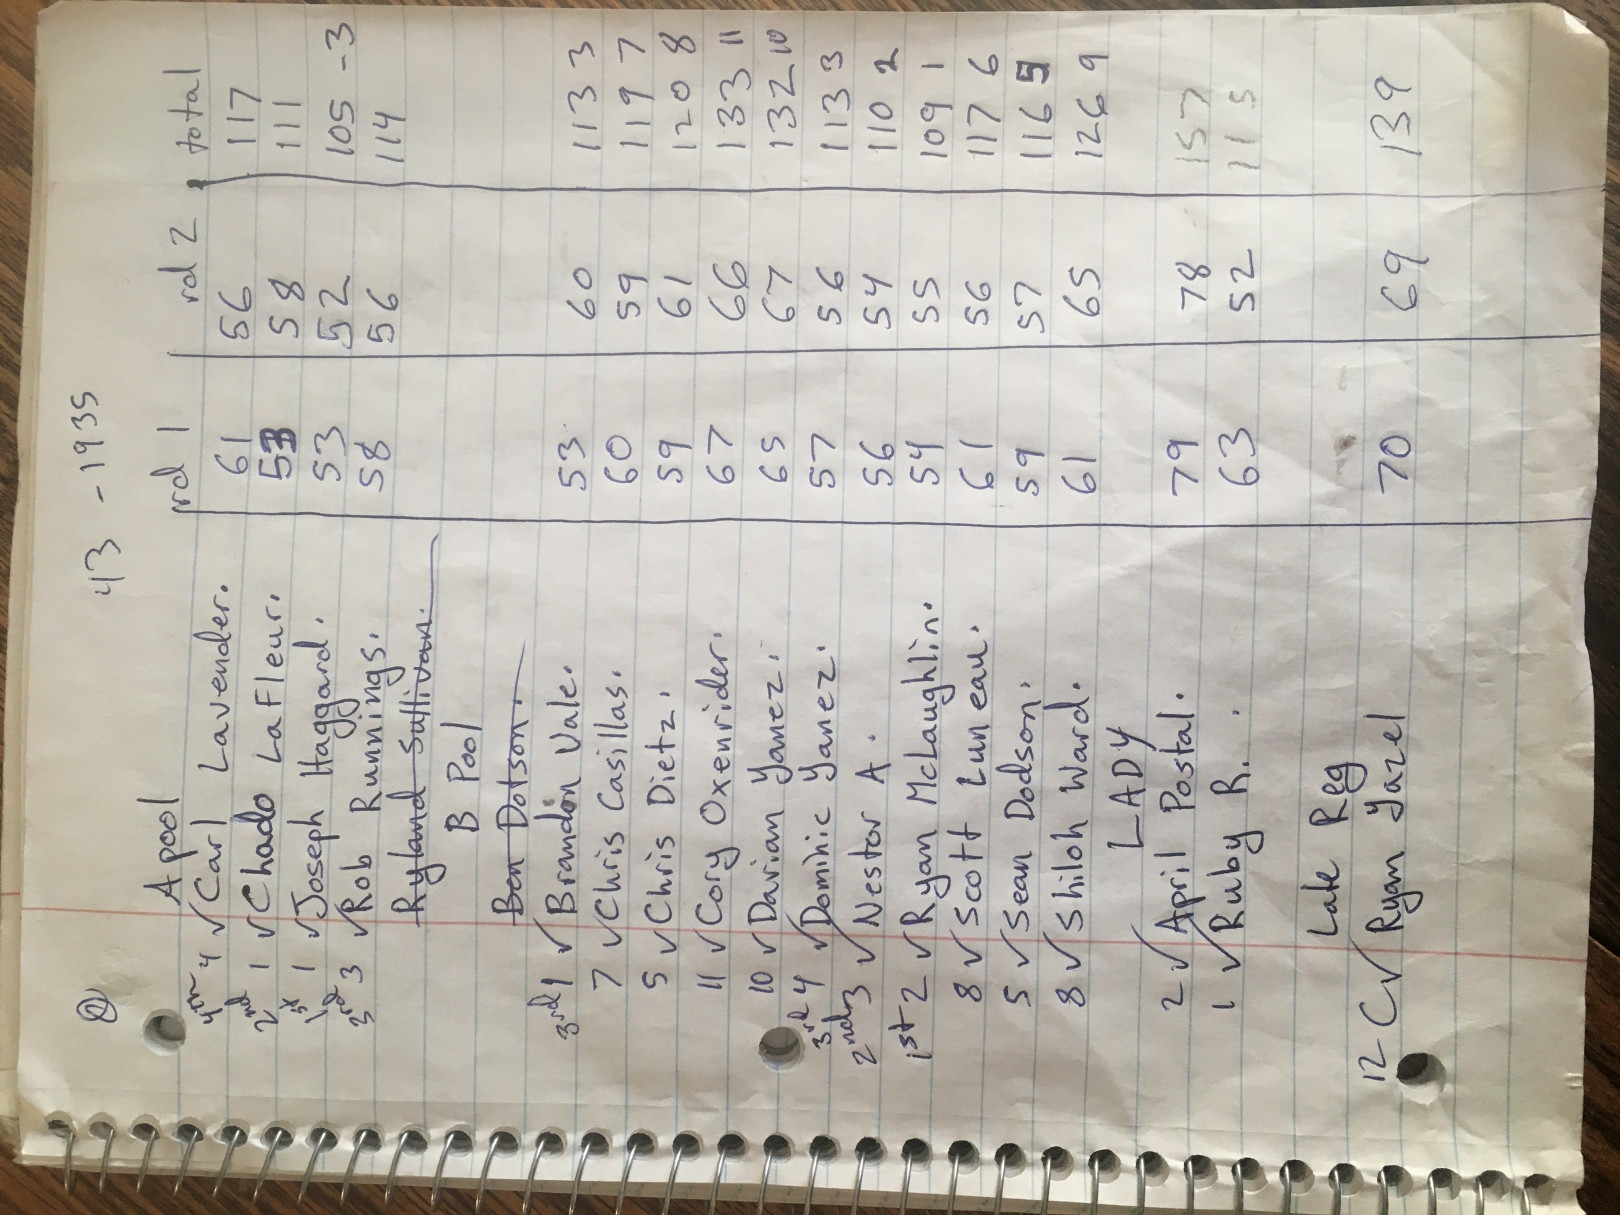 43 -1935
A pool rd 1 rd 2 total
4th 4 √ Carl Lavender. 61 56 117
2nd 1 √ Chado LaFleur. 53 58 111
1st 1 √ Joseph Haggard. 53 52 105 -3
3rd 3 √ Rob Runnings. 58 56 114
Ryland Sullivan.
B Pool
Ben Dotson.
3rd 1 √ Brandon Vale. 53 60 113 3
7 √ Chris Casillas. 60 59 119 7
5 √ Chris Dietz. 59 61 120 8
11 √ Cory Oxenrider. 67 66 133 11
10 √ Darian Yanez. 65 67 132 10
3rd 4 √ Dominic Yanez. 57 56 113 3
2nd 3 √ Nestor A. 56 54 110 2
1st 2 √ Ryan McLaughlin. 54 55 109 1
8 √ Scott Luneau. 61 56 117 6
5 √ Sean Dodson. 59 57 116 5
8 √ Shiloh Ward. 61 65 126 9
LADY
2 √ April Postal. 79 78 157
1 √ Ruby R. . 63 52 115
Late Reg
12 C √ Ryan Yazel 70 69 139